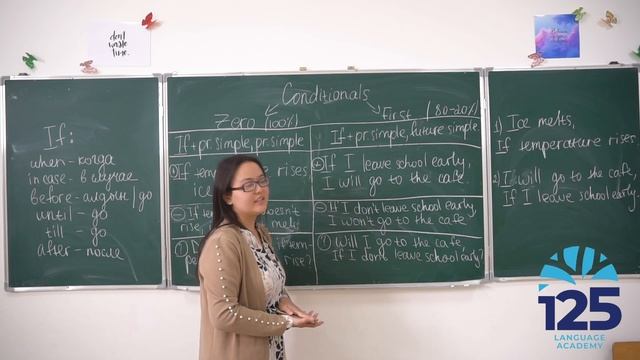 don't
waste
time.
If:
when - когда
in case - в случае
before - алдын / до
until - до
till - до
after - после
Conditionals
Zero (100%)
First (80-20%)
If + pr. simple, pr. simple
If + pr. simple, future simple.
+ If tem rises
ice
- If te doesn't
rise, melt
? D if tem-
pe rise?
+ If I leave school early,
I will go to the cafe.
- If I don't leave school early,
I won't go to the cafe
? Will I go to the cafe,
If I don't leave school early?
1) Ice melts,
If temperature rises.
2) I will go to the cafe,
If I leave school early.
125
LANGUAGE
ACADEMY